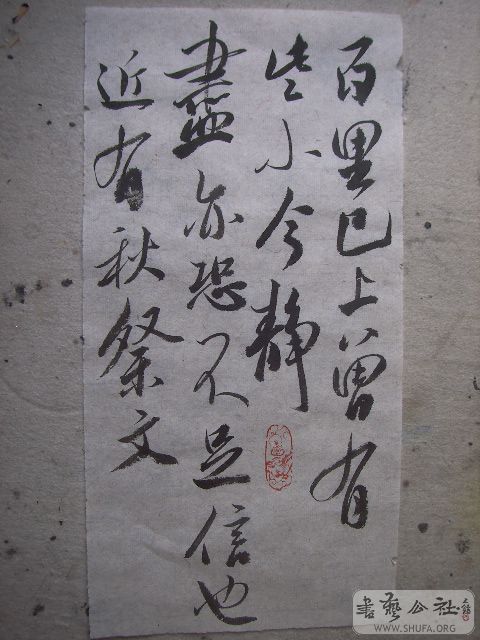 百里已上曾有
些小今静
盡亦恐不足信也
近有秋祭文
書藝公社
WWW.SHUFA.ORG